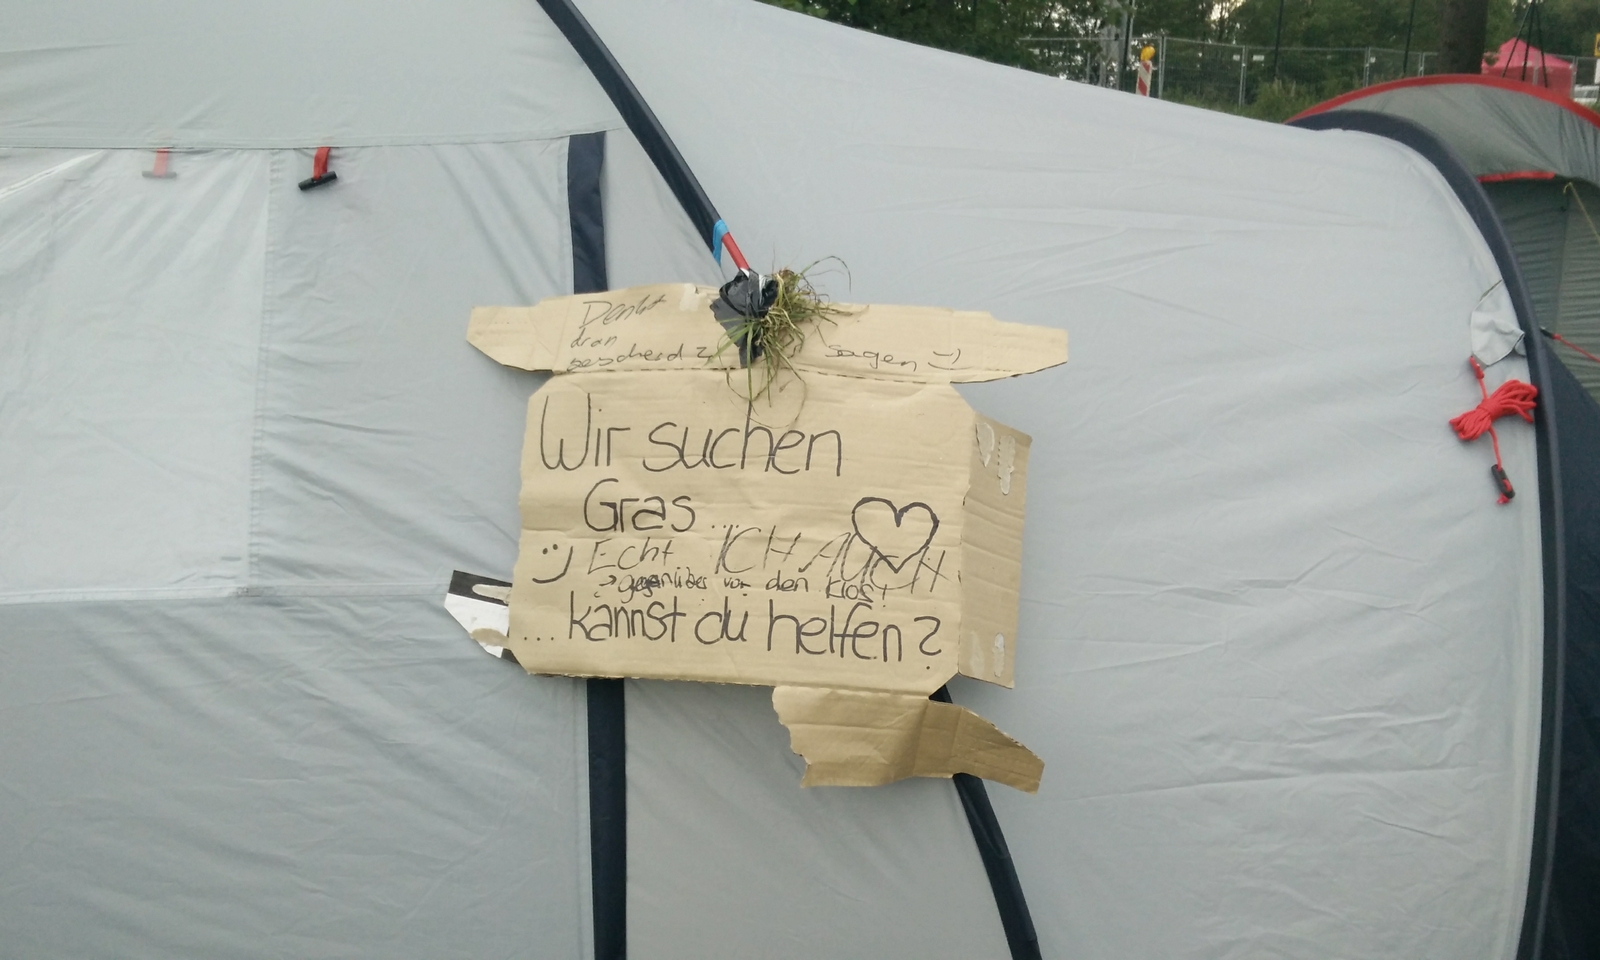 Denkt
dran
bescheid zu sagen :-)
Wir suchen
Gras ...
Echt ICH AUCH
→ gegenüber von den Klos!
... kannst du helfen?